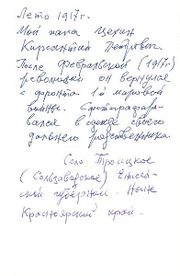 Лето 1917 г.
Мой папа Цехин
Кирсантий Петрович.
После февральской (1917г.)
революции он вернулся
с фронта 1й мировой
войны. Сфотографиро-
вался в одежде своего
дальнего родственника.
Село Троицкое
(Сользаводское) Енисей-
ской губернии. Ныне
Красноярский край.